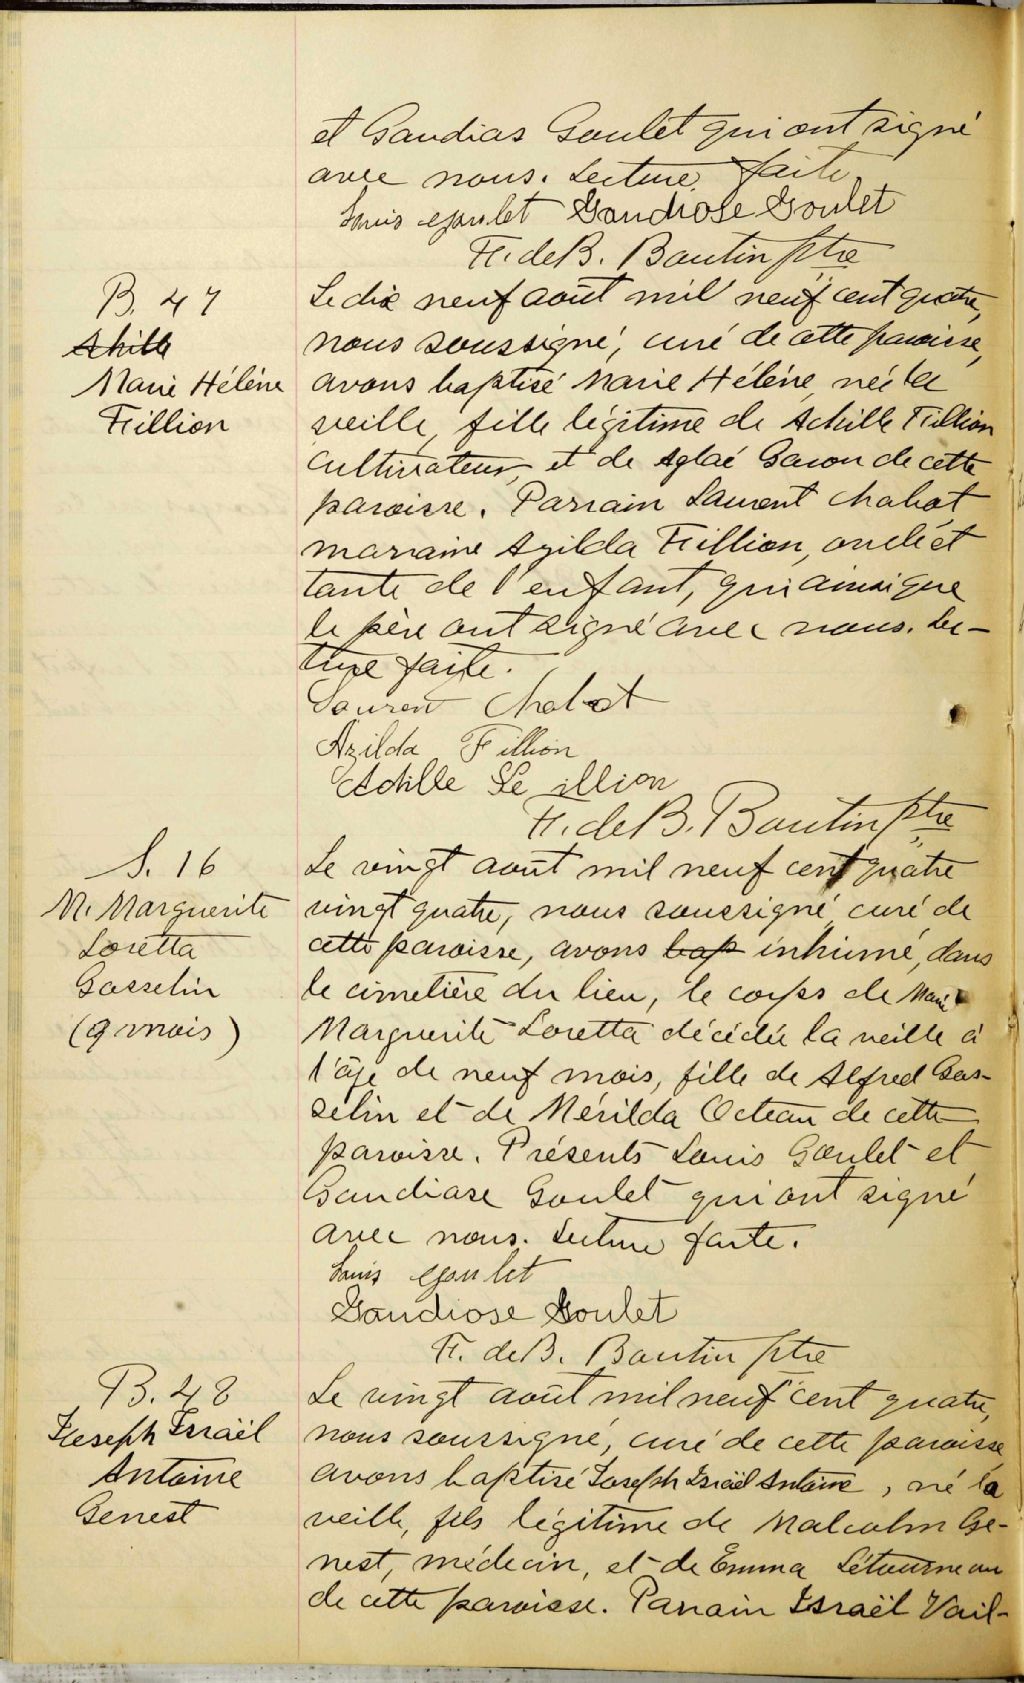 et Gaudias Goulet qui ont signé
avec nous. Lecture faite.
Louis Goulet Gaudiose Goulet
F. de B. Boutin ptre
B. 47
Achille
Marie Hélène
Fillion
Le dix neuf août mil neuf cent quatre,
nous soussigné, curé de cette paroisse,
avons baptisé Marie Hélène, née la
veille, fille légitime de Achille Fillion
cultivateur, et de Aglaé Garon de cette
paroisse. Parrain Laurent Chabot
marraine Azilda Fillion, oncle et
tante de l'enfant, qui ainsi que
le père ont signé avec nous. Lec-
ture faite.
Laurent Chabot
Azilda Fillion
Achille Fillion
F. de B. Boutin ptre
S. 16
M. Marguerite
Loretta
Gosselin
(9 mois)
Le vingt août mil neuf cent quatre
vingt quatre, nous soussigné curé de
cette paroisse, avons bap inhumé, dans
le cimetière du lieu, le corps de Marie
Marguerite Loretta décédée la veille à
l'âge de neuf mois, fille de Alfred Gos-
selin et de Mérilda Octeau de cette
paroisse. Présents Louis Goulet et
Gaudiase Goulet qui ont signé
avec nous. Lecture faite.
Louis Goulet
Gaudiose Goulet
F. de B. Boutin ptre
B. 48
Joseph Israël
Antoine
Genest
Le vingt août mil neuf cent quatre,
nous soussigné, curé de cette paroisse
avons baptisé Joseph Israël Antoine, né la
veille, fils légitime de Malcolm Ge-
nest, médecin, et de Emma Létourneau
de cette paroisse. Parrain Israël Vail-